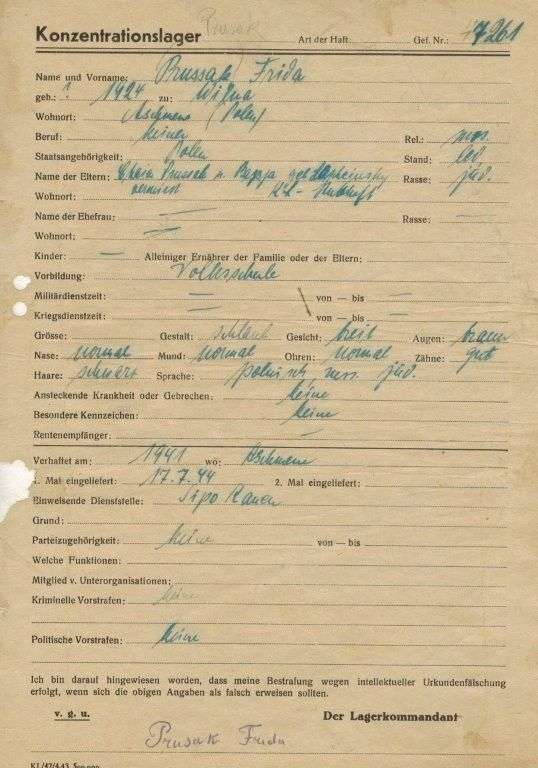 Konzentrationslager Prusak Art der Haft: Gef. Nr.: 47261
Name und Vorname: Brussak Frida
geb.: ? 1924 zu: Wilna
Wohnort: Aschmena (Polen)
Beruf: keinen Rel.: mos.
Staatsangehörigkeit: Polen Stand: led.
Name der Eltern: Brussak u. geb. Rasse: jüd.
Wohnort: vermisst KL-Stutthof
Name der Ehefrau: — Rasse: —
Wohnort: —
Kinder: — Alleiniger Ernährer der Familie oder der Eltern:
Vorbildung: Volksschule
Militärdienstzeit: — von — bis —
Kriegsdienstzeit: — von — bis —
Grösse: Gestalt: schlank Gesicht: breit Augen: braun
Nase: normal Mund: normal Ohren: normal Zähne: gut
Haare: schwarz Sprache: polnisch russ. jüd.
Ansteckende Krankheit oder Gebrechen: keine
Besondere Kennzeichen: keine
Rentenempfänger: —
Verhaftet am: 1941 wo: Aschmena
1. Mal eingeliefert: 17.7.44 2. Mal eingeliefert:
Einweisende Dienststelle: Sipo Kauen
Grund:
Parteizugehörigkeit: keine von — bis
Welche Funktionen:
Mitglied v. Unterorganisationen:
Kriminelle Vorstrafen: keine
Politische Vorstrafen: keine
Ich bin darauf hingewiesen worden, dass meine Bestrafung wegen intellektueller Urkundenfälschung
erfolgt, wenn sich die obigen Angaben als falsch erweisen sollten.
v. g. u. Der Lagerkommandant
Prusak Frida
KL/42/4.43 500.000